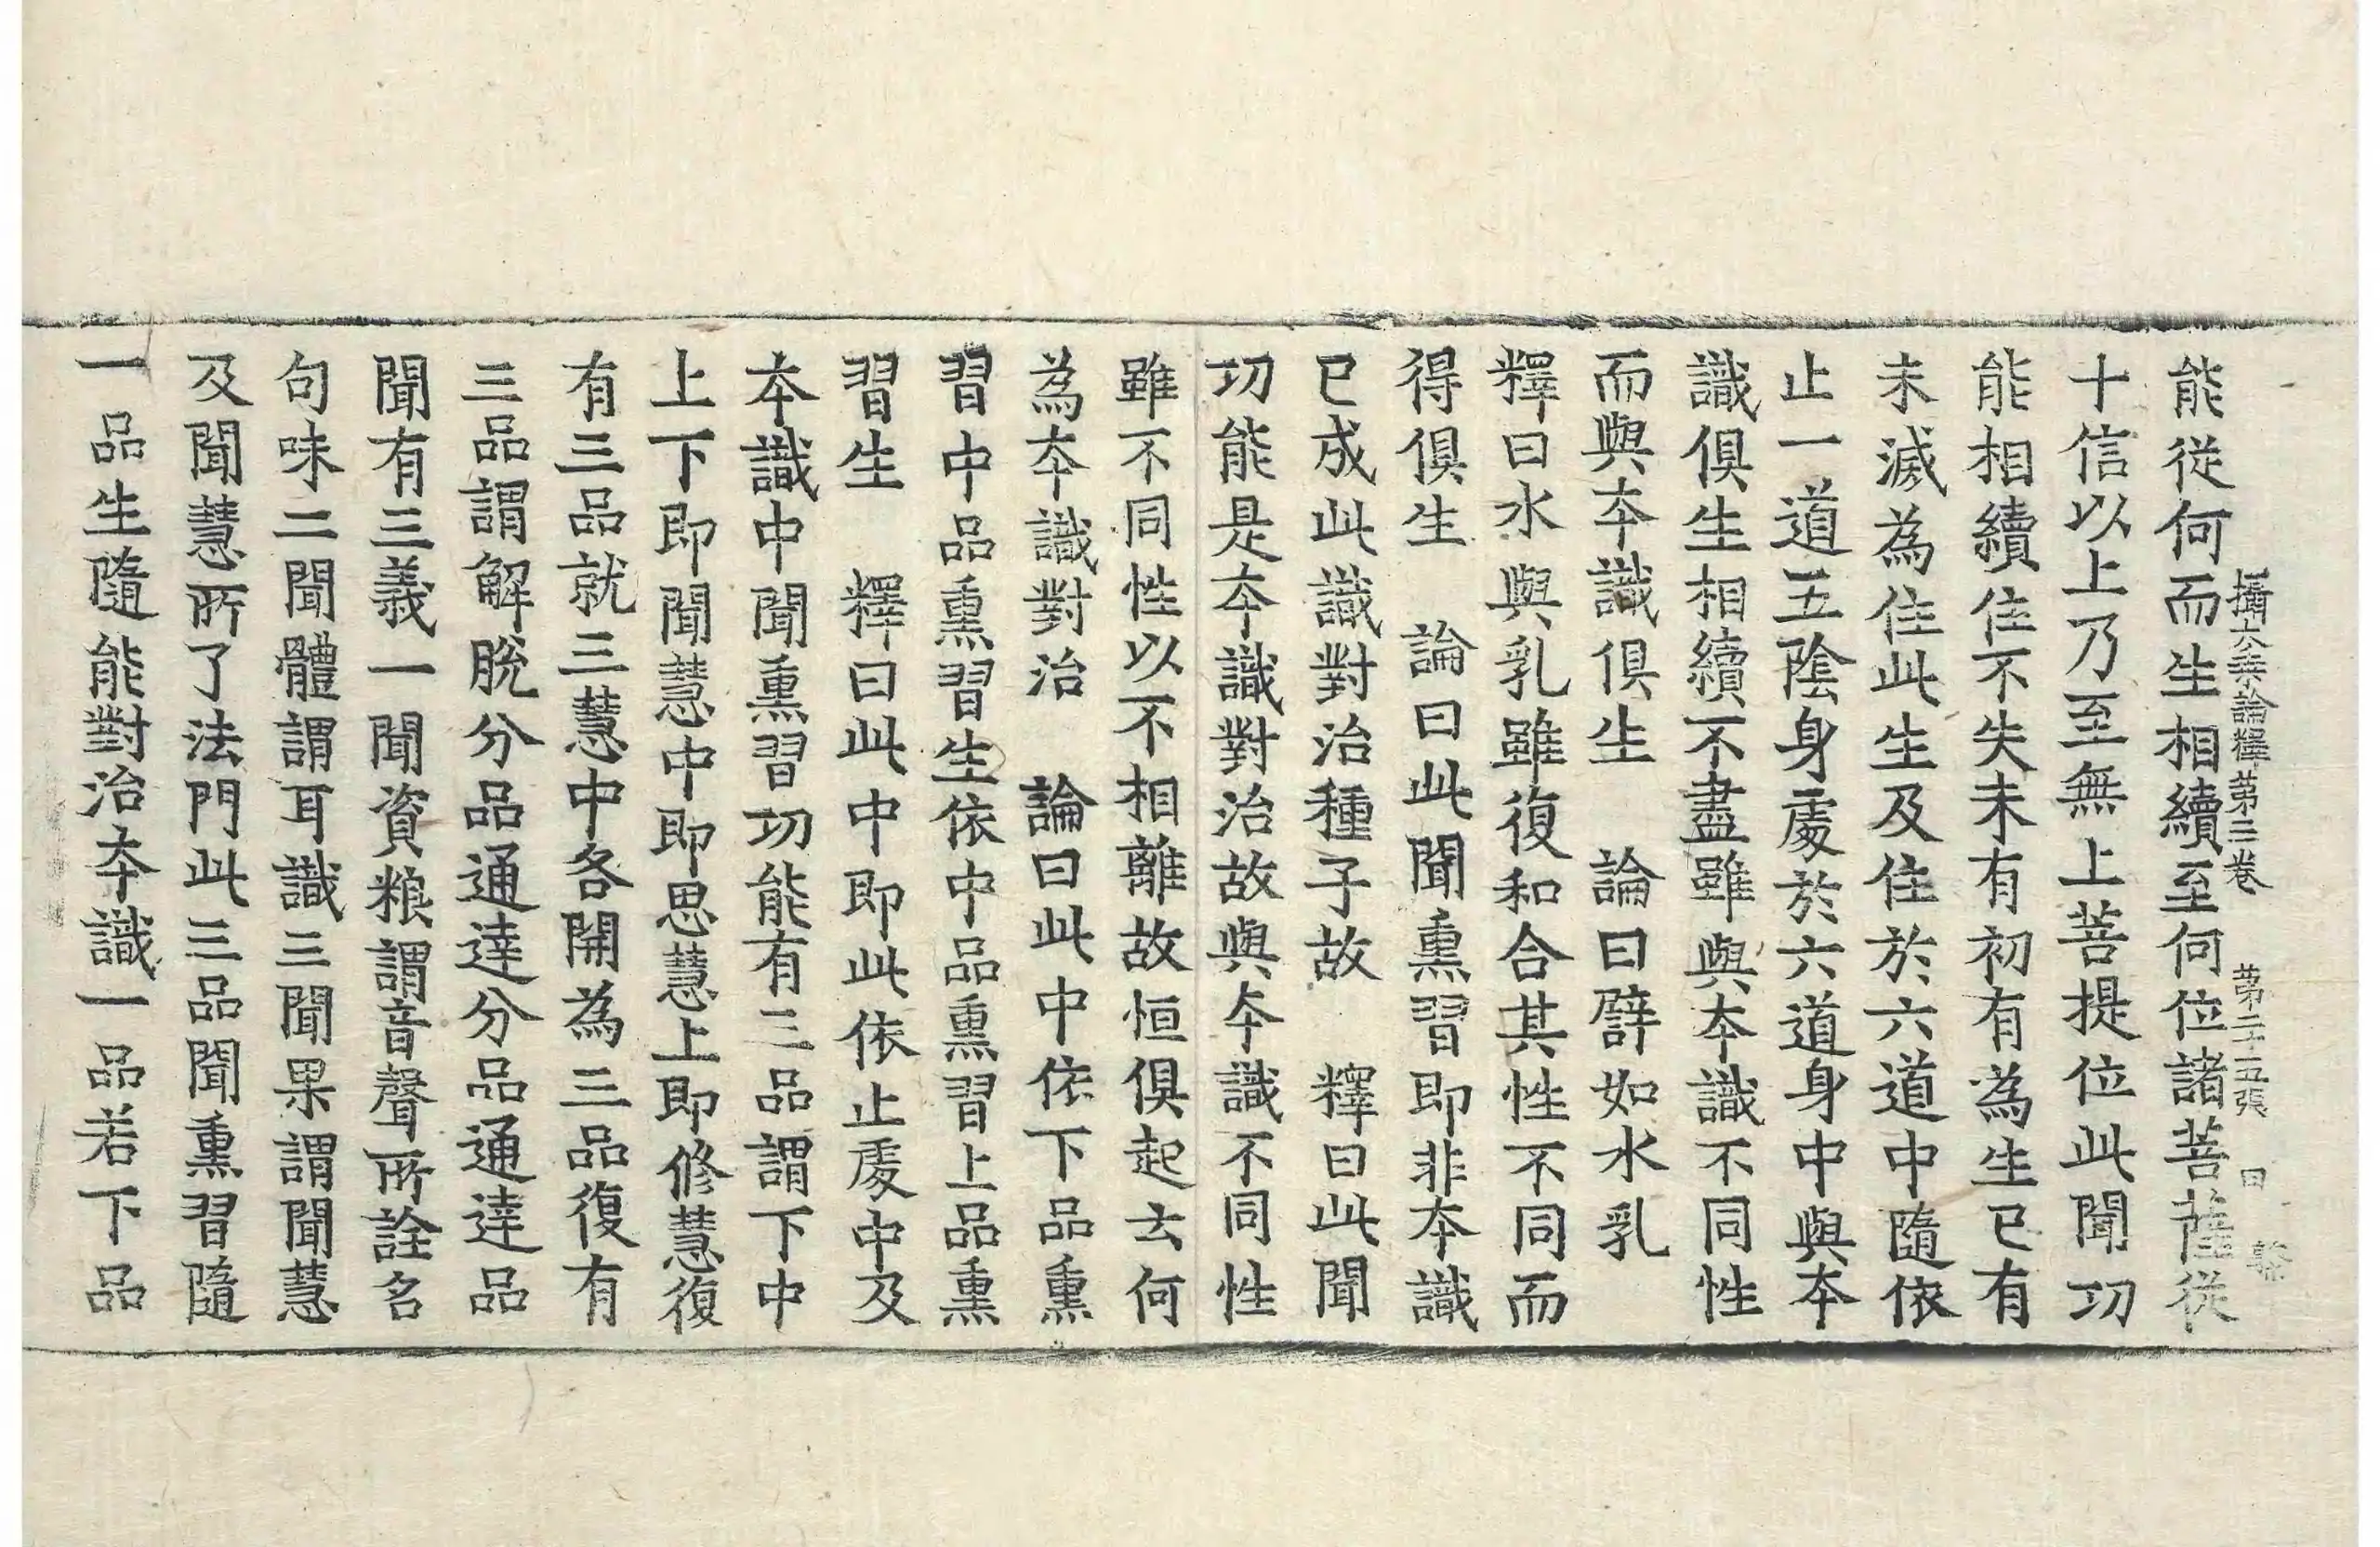 攝大乘論釋苐三卷 苐二十五張 曰
能從何而生相續至何位諸菩薩從
十信以上乃至無上菩提位此聞功
能相續住不失未有初有為生已有
未滅為住此生及住於六道中隨依
止一道五陰身處於六道身中與本
識俱生相續不盡雖與本識不同性
而與本識俱生 論曰譬如水乳
釋曰水與乳雖復和合其性不同而
得俱生 論曰此聞熏習即非本識
已成此識對治種子故 釋曰此聞
功能是本識對治故與本識不同性
雖不同性以不相離故恒俱起云何
為本識對治 論曰此中依下品熏
習中品熏習生依中品熏習上品熏
習生 釋曰此中即此依止處中及
本識中聞熏習功能有三品謂下中
上下即聞慧中即思慧上即修慧復
有三品就三慧中各開為三品復有
三品謂解脫分品通達分品通達品
聞有三義一聞資粮謂音聲所詮名
句味二聞體謂耳識三聞果謂聞慧
及聞慧所了法門此三品聞熏習隨
一品生隨能對治本識一品若下品